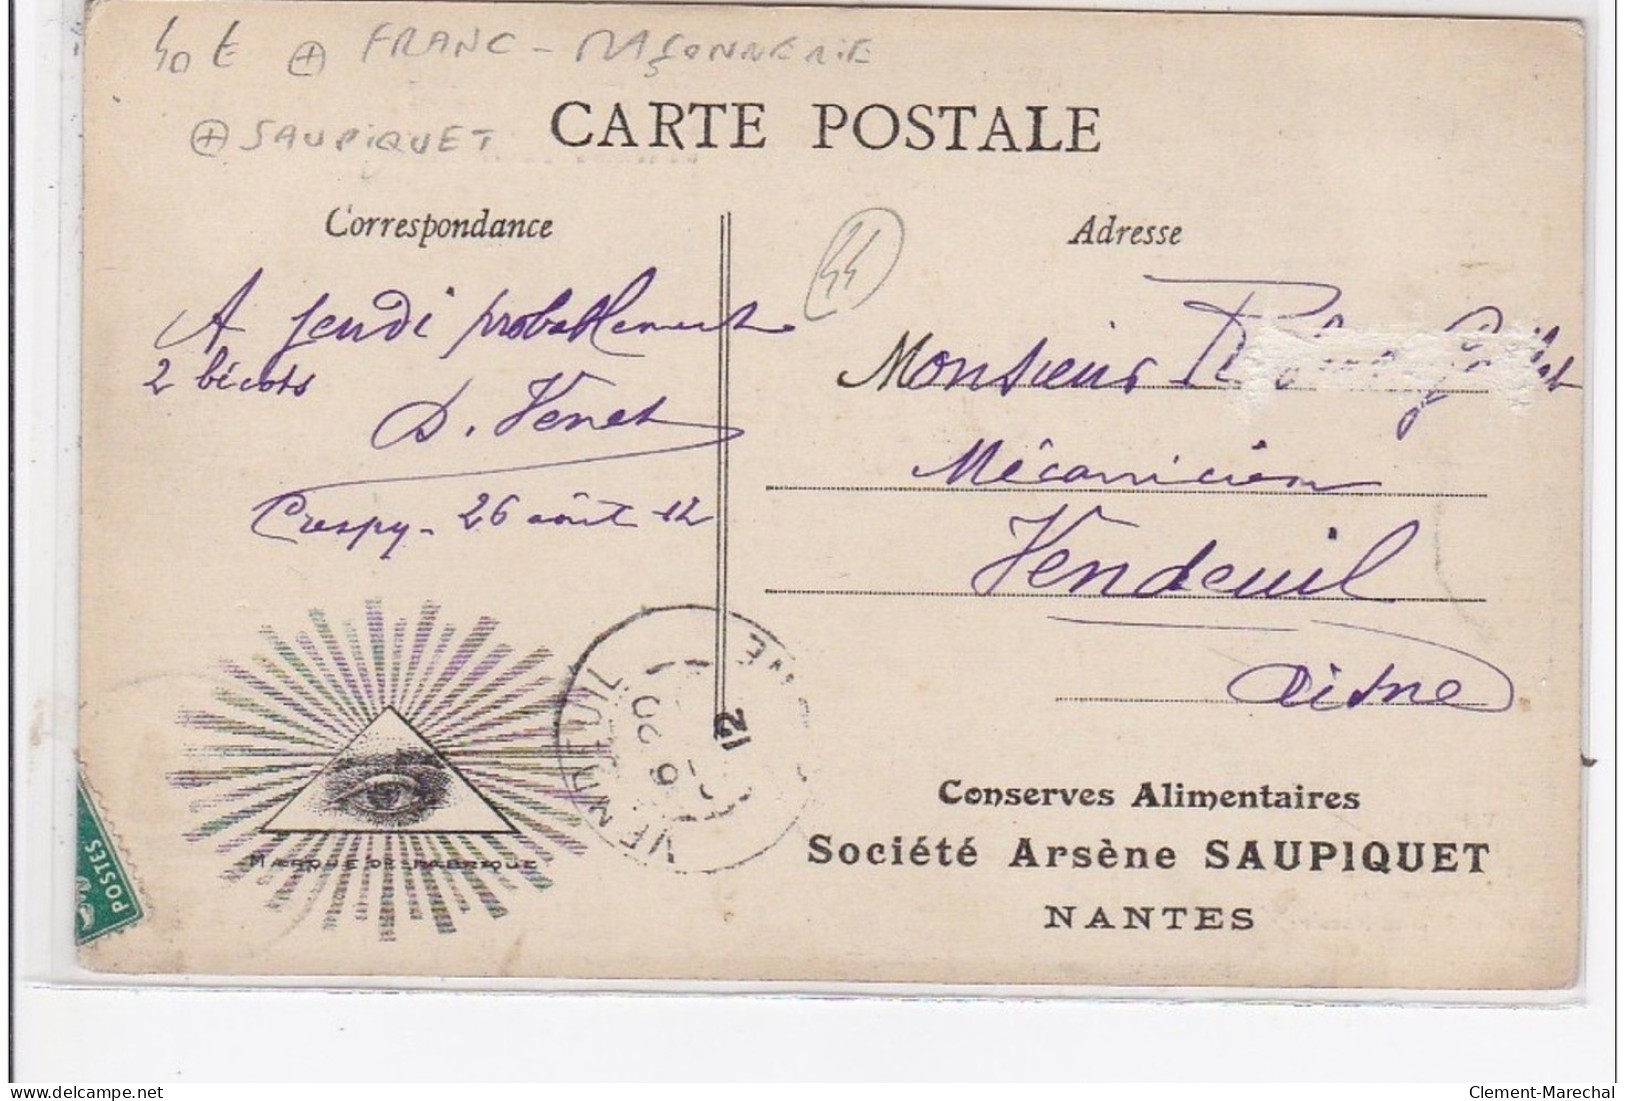 40 € FRANC-MAÇONNERIE
SAUPIQUET
CARTE POSTALE
Correspondance
Adresse
44
A jeudi probablement
2 bécots
D. Venet
Crespy - 26 août 12
Monsieur
Mécanicien
Vendeuil
Aisne
MARQUE DE FABRIQUE
VENDEUIL
12
POSTES
Conserves Alimentaires
Société Arsène SAUPIQUET
NANTES
delcampe.net
Clement-Marechal